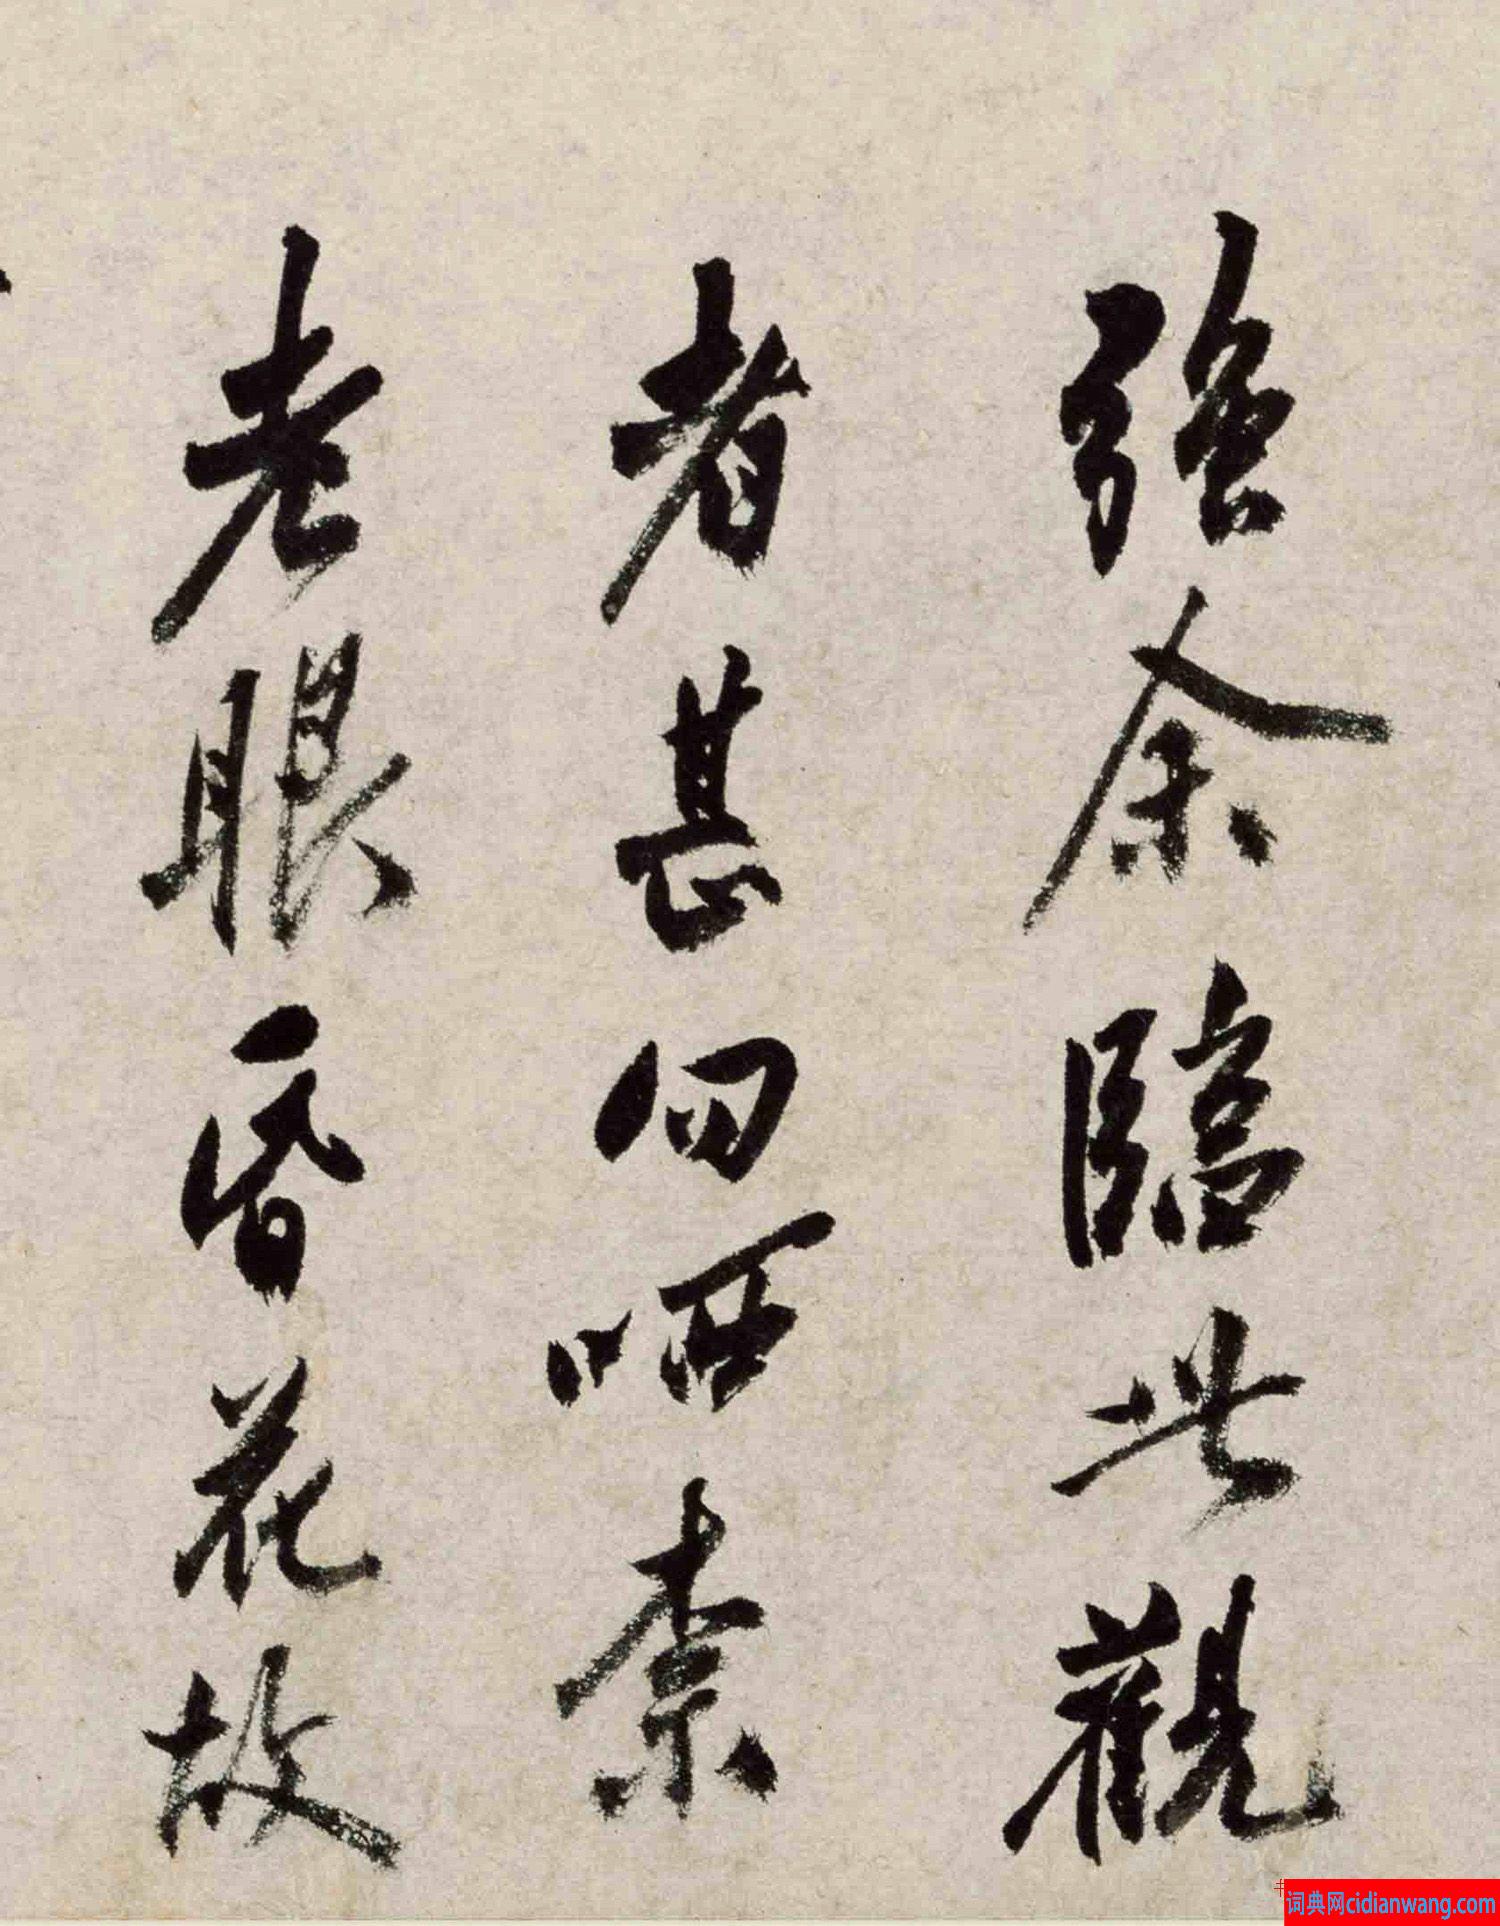 強余臨此觀
者甚勿哂柰
老眼昏花故
词典网cidianwang.com